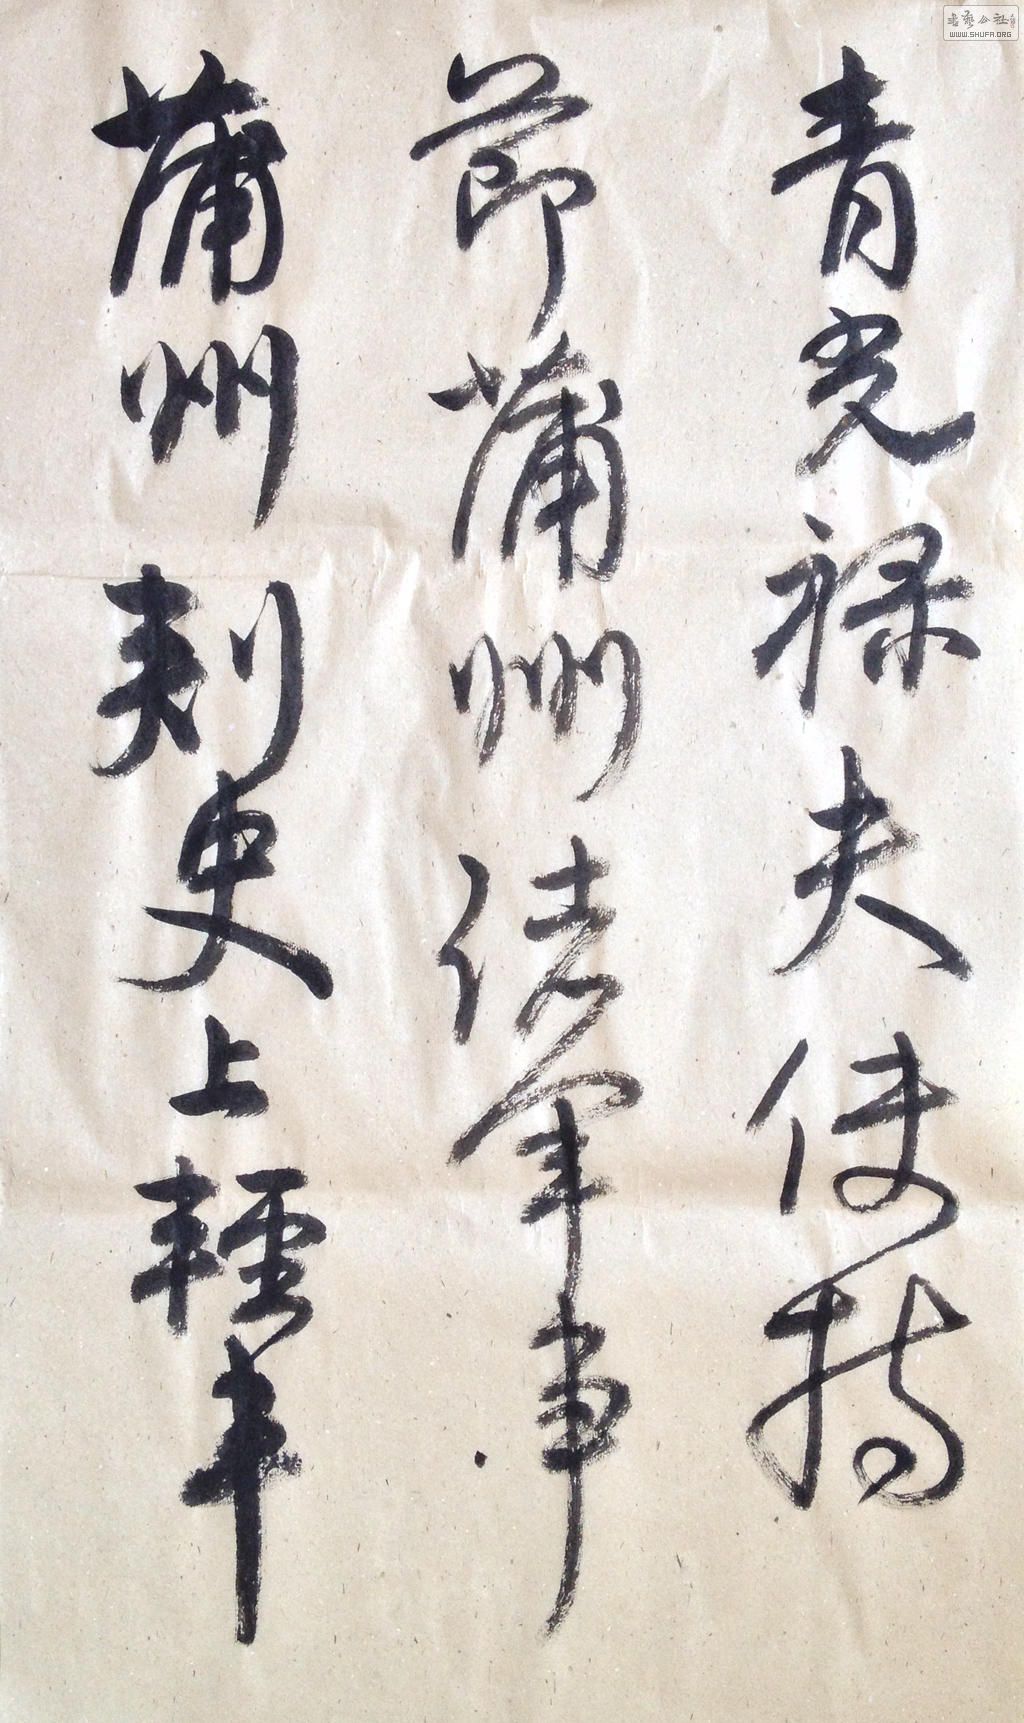 青光禄夫使持
節蒲州诸軍事
蒲州刺史上輕車
書藝公社
WWW.SHUFA.ORG